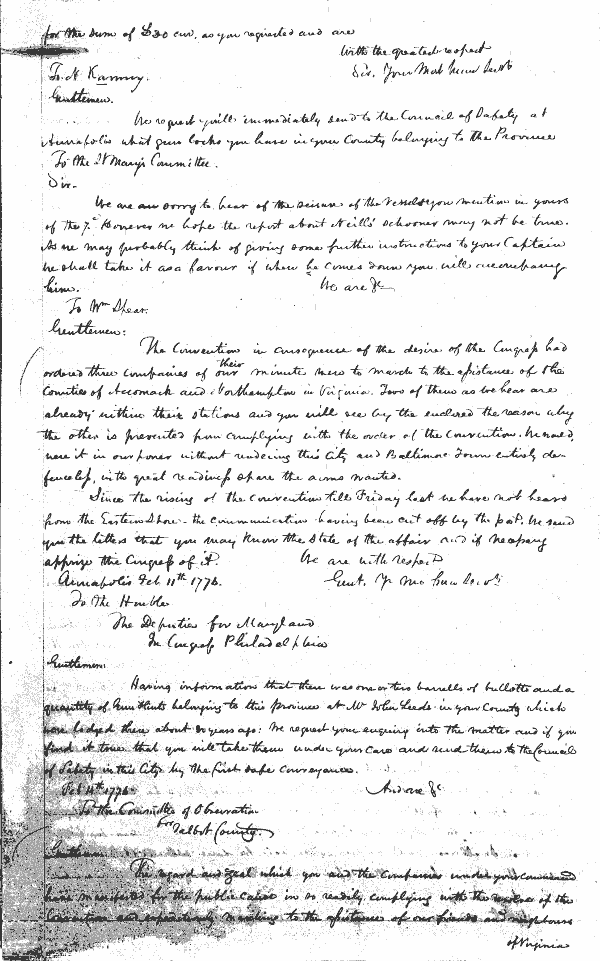 for the sum of £30 cur. as you requested and are
With the greatest respect
Sir. Your Mob hum Servts
To N Kammy.
Gentlemen.
We request you'll immediately send to the Council of Safety at
Annapolis what gun locks you have in your County belonging to the Province
To the St Mary's Committee.
Sir.
We are sorry to hear of the seisure of the Vessels you mention in yours
of the 7. However we hope the report about Neill's schooner may not be true.
As we may probably think of giving some further instructions to your Captain
we shall take it as a favour if when he comes down you will accompany
him. We are &c
To Wm Spear.
Gentlemen:
The Convention in consequence of the desire of the Congress had
ordered three companies of our their minute men to march to the assistance of the
Counties of Accomack and Northampton in Virginia. Two of them as we hear are
already within their stations and you will see by the enclosed the reason why
the other is prevented from complying with the order of the Convention. We would,
were it in our power without rendering this City and Baltimore Town entirely de-
fenceless, with great readiness spare the arms wanted.
Since the rising of the Convention till Friday last we have not heard
from the Eastern Shore - the communication having been cut off by the We send
you the letters that you may know the State of the affair and if necessary
apprize the Congress of it. We are with respect
Annapolis Feb 11th 1776. Gent. Yr Mo hum Servts
To the Honble
The Deputies for Maryland
In Congress Philadelphia
Gentlemen.
Having information that there was one or two barrells of bullets and a
quantity of Gun flints belonging to this province at Mr John Leeds in your County which
were lodged there about 20 years ago: We request your enquiry into the matter and if you
find it true that you will take them under your Care and send them to the Council
of Safety in this City by the first safe conveyance.
Feb 11th 1776 And are &c
To the Committee of Observation
for Talbot County.
Gentlemen
The regard and zeal which you and the Companies under your command
have manifested for the public cause in so readily complying with the resolve of the
Convention and expeditiously marching to the assistance of our friends and neighbours
of Virginia